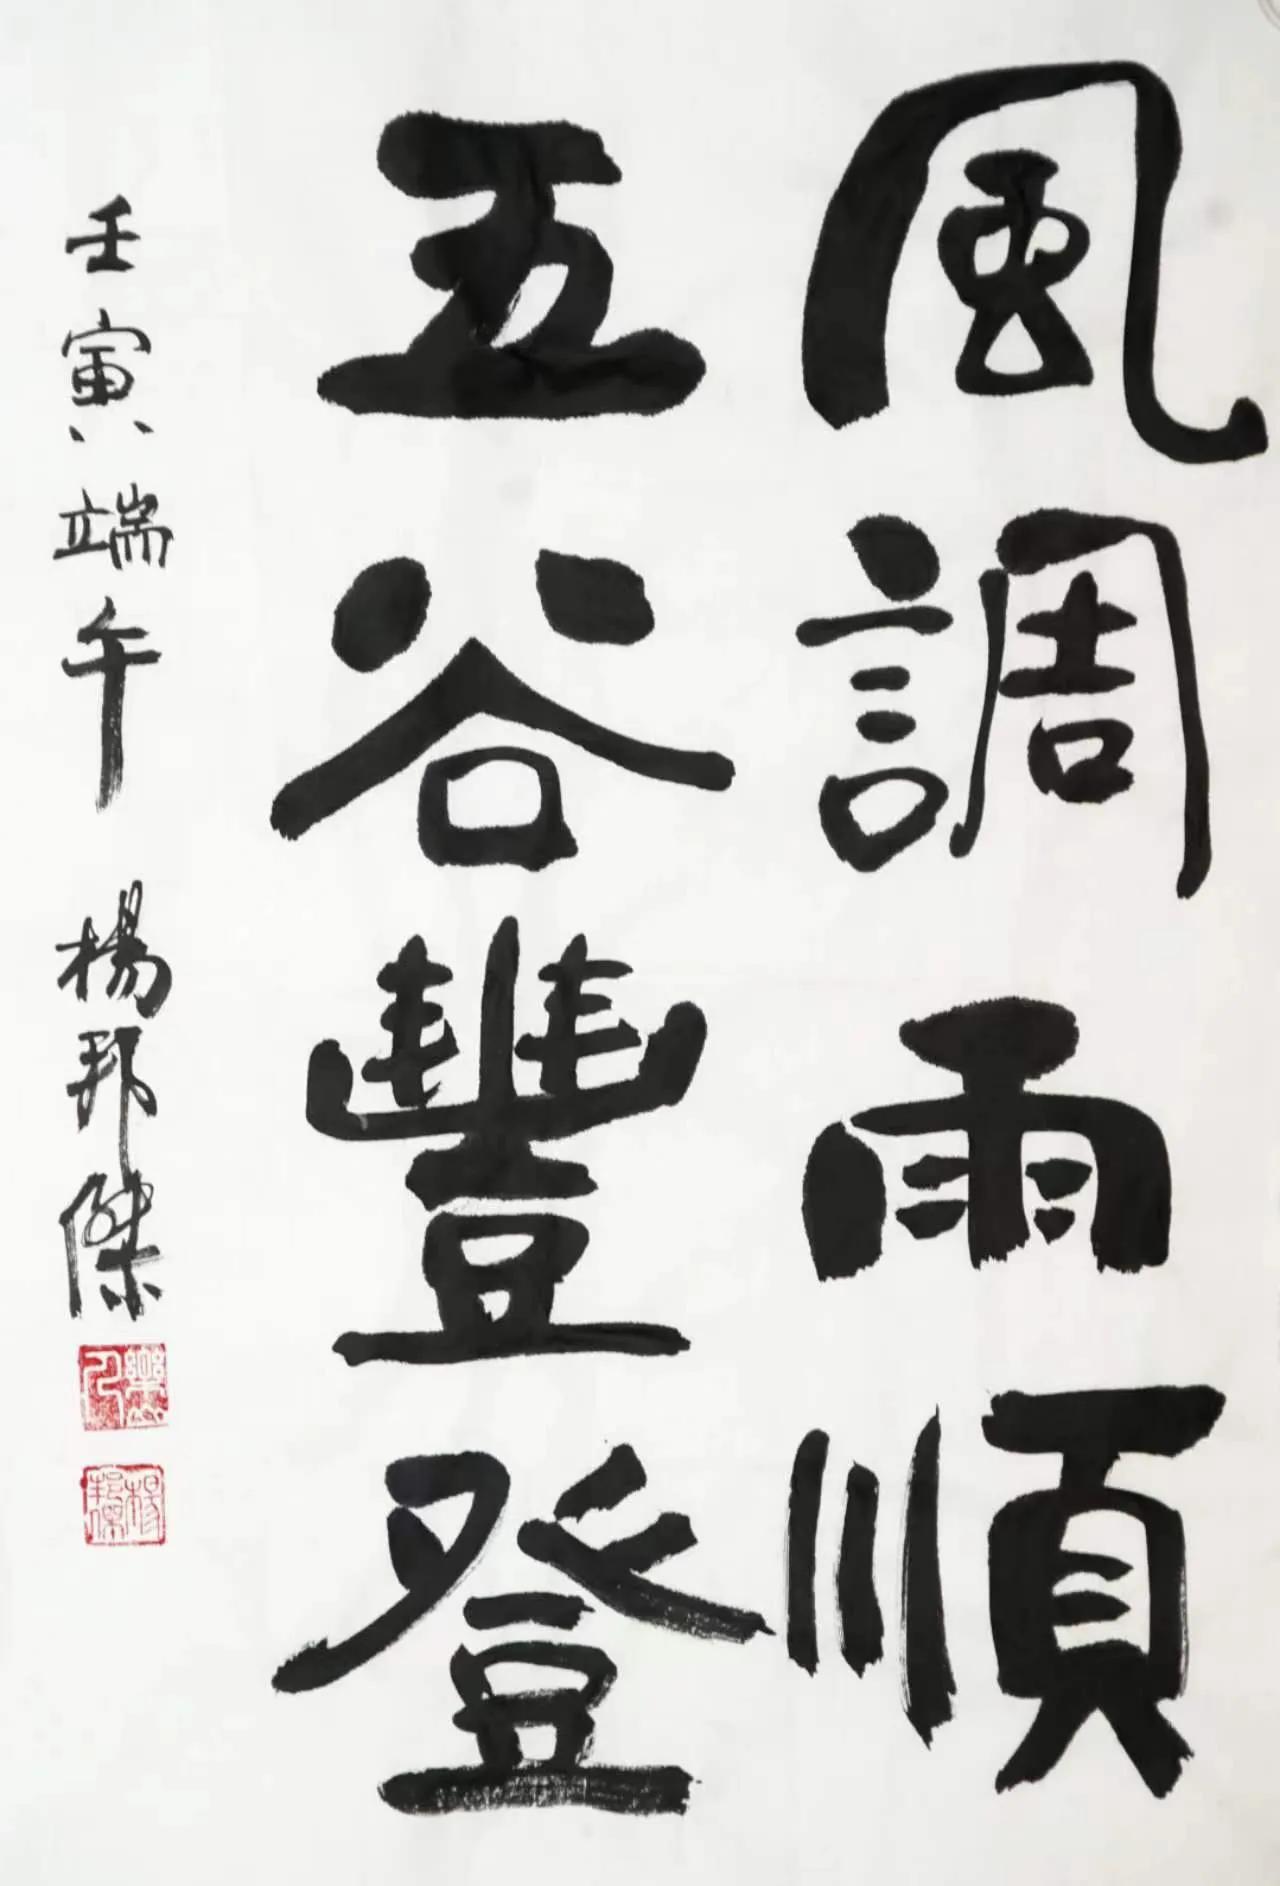 風調雨順
五谷豐登
壬寅端午 楊邦傑